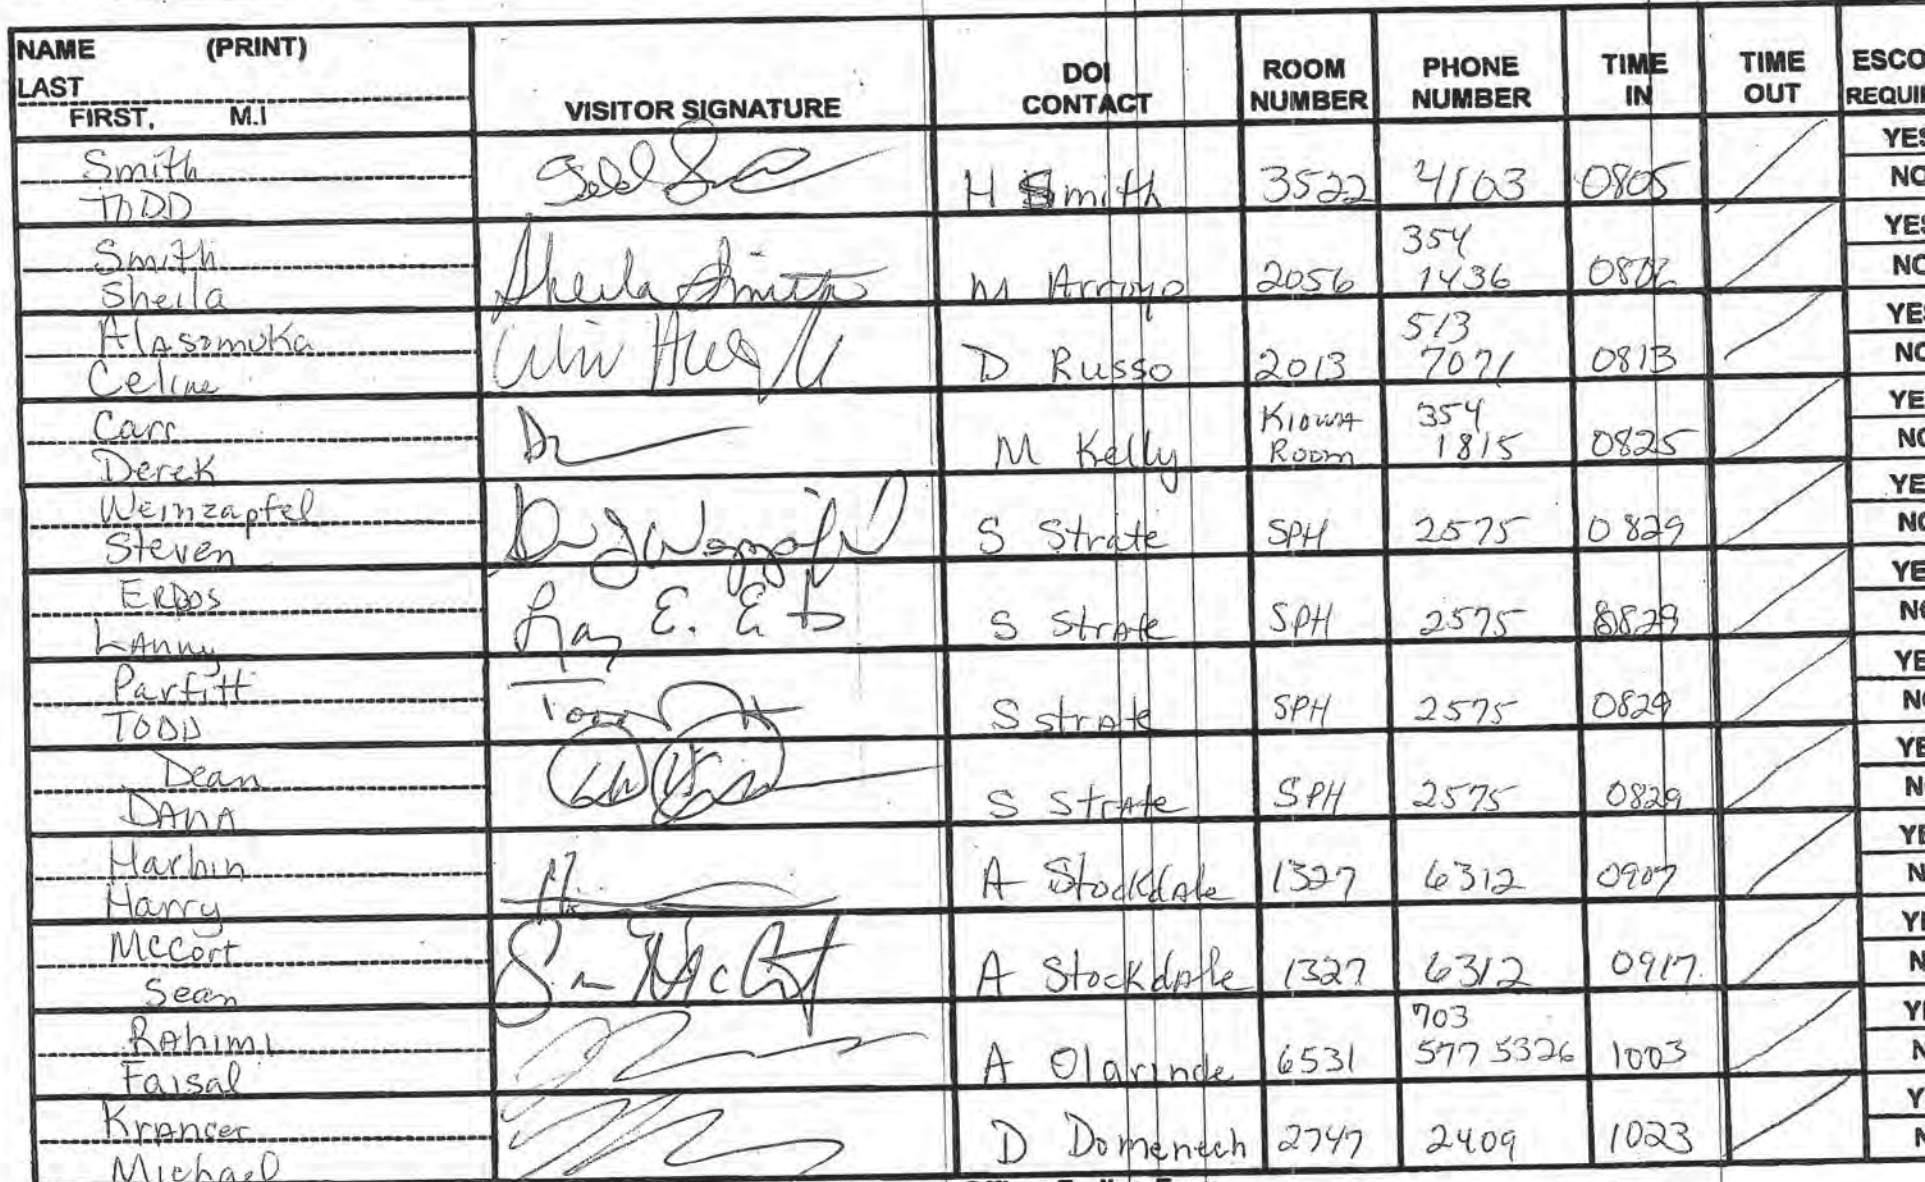 NAME (PRINT)
LAST
FIRST, M.I
VISITOR SIGNATURE
DOI CONTACT
ROOM NUMBER
PHONE NUMBER
TIME IN
TIME OUT
ESCO
REQUIR
Smith
TODD
H Smith 3522 4103 0805
YES
NO
Smith
Sheila
Sheila Smith
M Arroyo 2056 354 1436
YES
NO
Alasomuka
Celine
D Russo 2013 513 7071 0813
YES
NO
Carr
Derek
M Kelly Kiowa Room 354 1815 0825
YE
NO
Weinzapfel
Steven
S Strate SPH 2575 0829
YE
NO
ERDOS
LAnny
S Strate SPH 2575 0829
YE
NO
Parfitt
TODD
S Strate SPH 2575 0829
YE
NO
Dean
DANA
S Strate SPH 2575 0829
YE
N
Harbin
Harry
A Stockdale 1327 6312 0907
YE
N
McCort
Sean
A Stockdale 1327 6312 0917
YE
N
Rahimi
Faisal
A Olarinde 6531 703 577 5326 1003
YE
N
Krancer
Michael
D Domenech 2747 2409 1023
Y
N